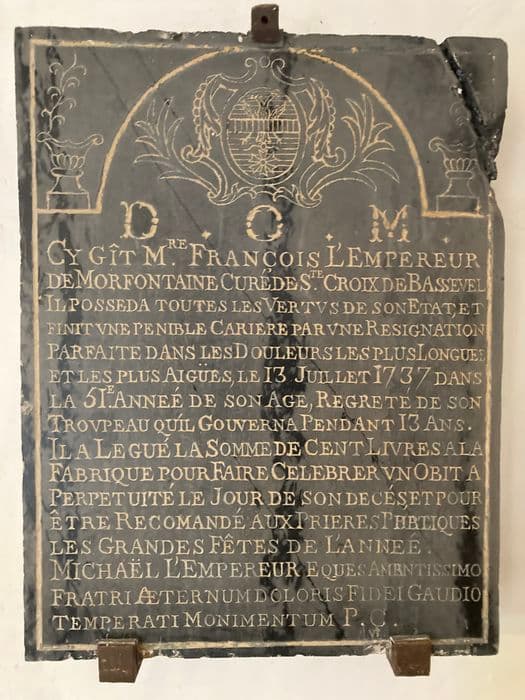 D. O. M.
CY GÎT M.RE FRANCOIS L'EMPEREUR
DE MORFONTAINE CURÉ DE S.TE CROIX DE BASSEVEL
IL POSSEDA TOUTES LES VERTVS DE SON ETAT, ET
FINIT VNE PENIBLE CARIERE PAR VNE RESIGNATION
PARFAITE DANS LES DOULEURS LES PLUS LONGUES
ET LES PLUS AIGÜES, LE 13 JUILLET 1737 DANS
LA 51E ANNEÉ DE SON AGE, REGRETÉ DE SON
TROVPEAU QU'IL GOUVERNA PENDANT 13 ANS.
IL A LEGUÉ LA SOMME DE CENT LIVRES A LA
FABRIQUE POUR FAIRE CELEBRER VN OBIT A
PERPETUITÉ LE JOUR DE SON DECÉS, ET POUR
ÊTRE RECOMANDÉ AUX PRIERES PUBLIQUES
LES GRANDES FÊTES DE L'ANNEÉ.
MICHAËL L'EMPEREUR EQUES AMANTISSIMO
FRATRI ÆTERNUM DOLORIS FIDEI GAUDIO
TEMPERATI MONIMENTUM P. C.